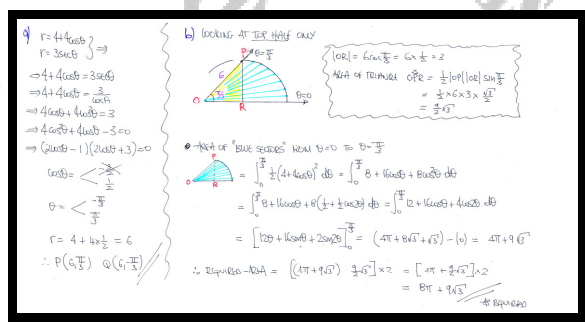 a) r = 4+4cosθ
r = 3secθ } ⇒
⇒ 4+4cosθ = 3secθ
⇒ 4+4cosθ = 3/cosθ
⇒ 4cosθ + 4cos²θ = 3
⇒ 4cos²θ + 4cosθ - 3 = 0
⇒ (2cosθ - 1)(2cosθ + 3) = 0
cosθ = < -3/2 1/2
θ = < -π/3 π/3
r = 4 + 4×1/2 = 6
∴ P(6, π/3) Q(6, -π/3)
b) LOOKING AT TOP HALF ONLY
P θ = π/3
6
π/3
O R θ=0
|OR| = 6cos π/3 = 6 × 1/2 = 3
AREA OF TRIANGLE OPR = 1/2 |OP||OR| sin π/3
= 1/2 × 6 × 3 × √3/2
= 9/2 √3
● AREA OF "BLUE SECTORS" FROM θ=0 TO θ= π/3
P
O R
= ∫₀^(π/3) 1/2 (4+4cosθ)² dθ = ∫₀^(π/3) 8 + 16cosθ + 8cos²θ dθ
= ∫₀^(π/3) 8 + 16cosθ + 8(1/2 + 1/2 cos2θ) dθ = ∫₀^(π/3) 12 + 16cosθ + 4cos2θ dθ
= [12θ + 16sinθ + 2sin2θ]₀^(π/3) = (4π + 8√3 + √3) - (0) = 4π + 9√3
∴ REQUIRED AREA = [(4π + 9√3) 9/2 √3] × 2 = [4π + 9/2 √3] × 2
= 8π + 9√3
AS REQUIRED